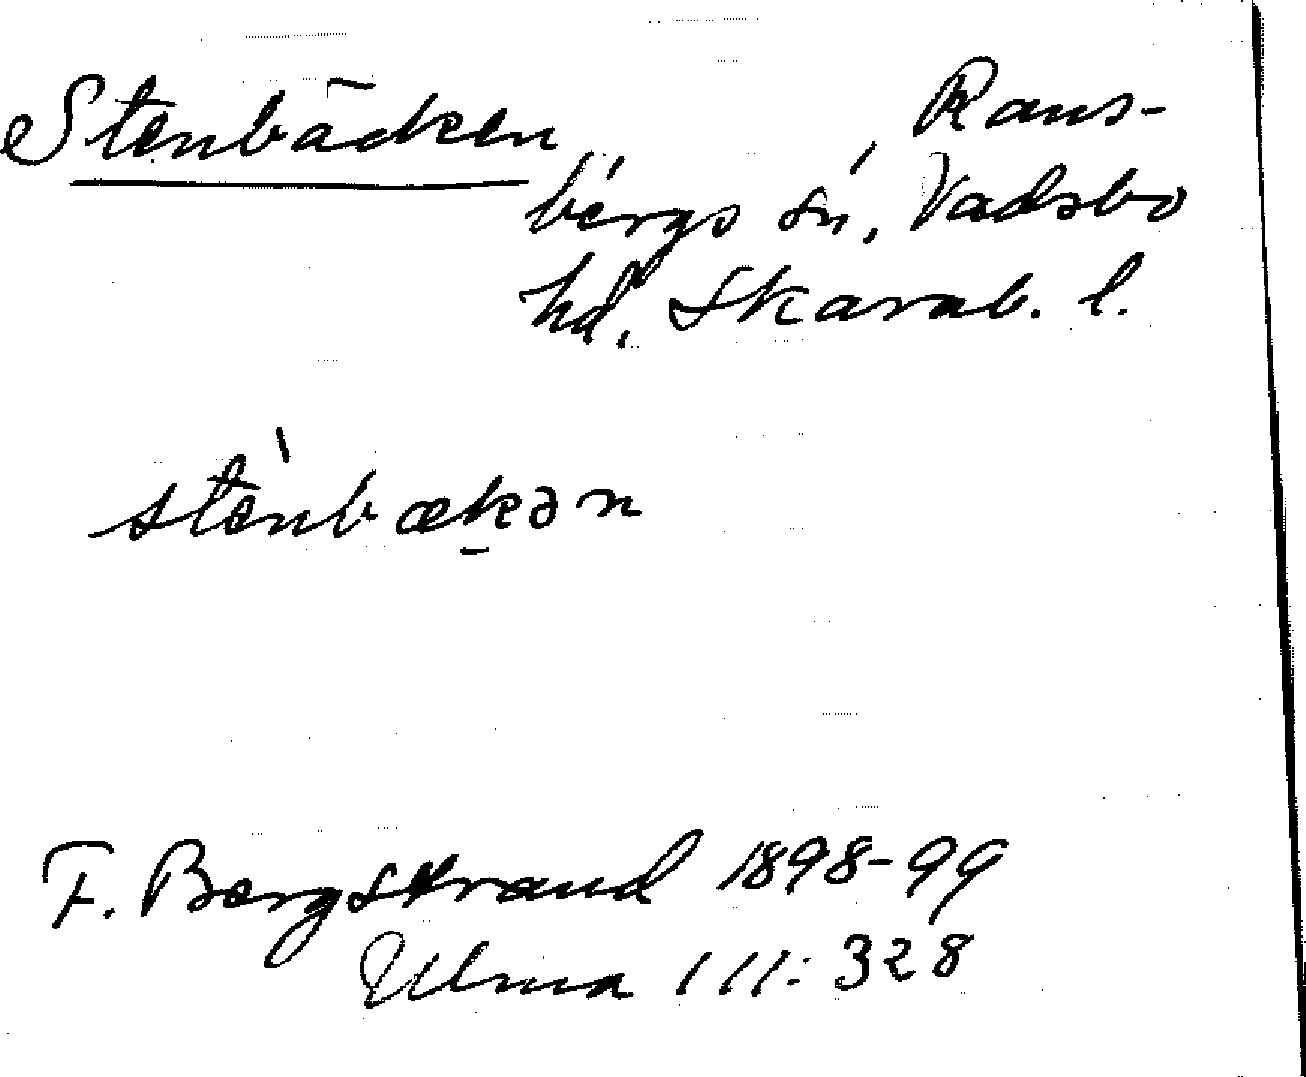 Stenbäcken
Rans-
bergs sn, Vadsbo
hd. Skarab. l.
stènbækən
F. Bergstrand 1898-99
Ulma 111:328